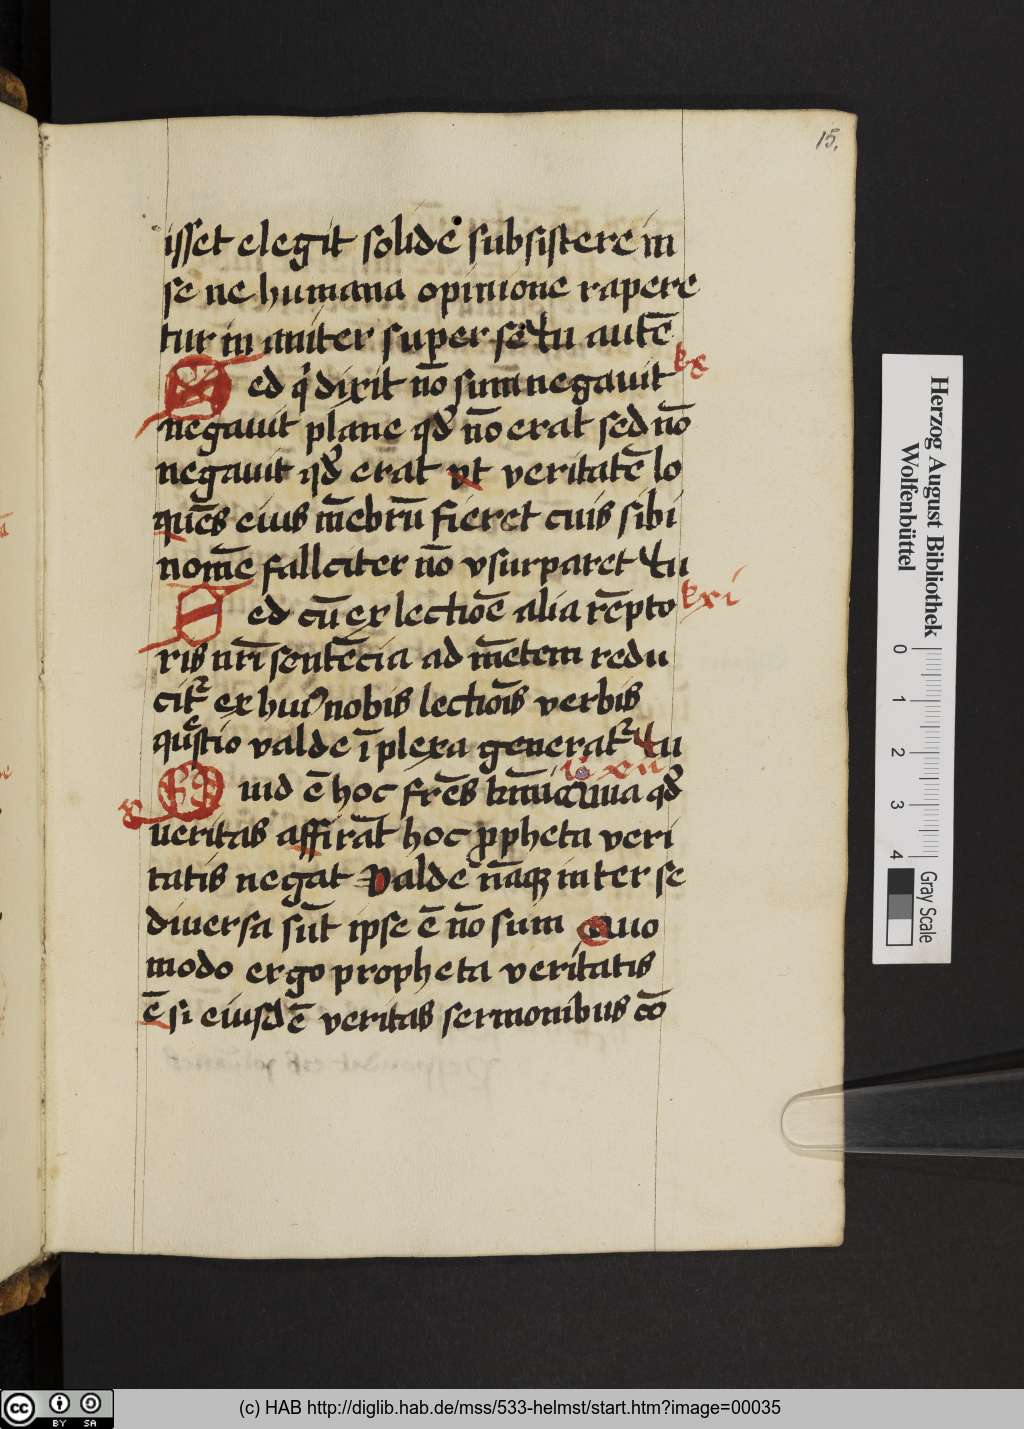 15.
isset elegit solidē subsistere in
se ne humana opinione rapere
tur in aniter super se tu autē
lx
Sed q dixit nō sum negauit
negauit plane qd nō erat sed nō
negauit qd erat vt veritatē lo
quēs eius mēbrū fieret cuis sibi
nomē fallciter nō vsurparet tu
lxi
Sed cū ex lectiōe alia rēpto
ris nrī sentēcia ad mētem redu
cit ex hui nobis lectiōis verbis
questio valde īplexa generat tu
lxii
Quid ē hoc frēs quia qd
v
ueritas affirāt hoc ppheta veri
tatis negat Valde nāq inter se
diuersa sūt ipse ē nō sum Quo
modo ergo propheta veritatis
ē si eiusdē veritas sermonibus cō
Herzog August Bibliothek
Wolfenbüttel
0 1 2 3 4
Gray Scale
cc BY SA
(c) HAB http://diglib.hab.de/mss/533-helmst/start.htm?image=00035